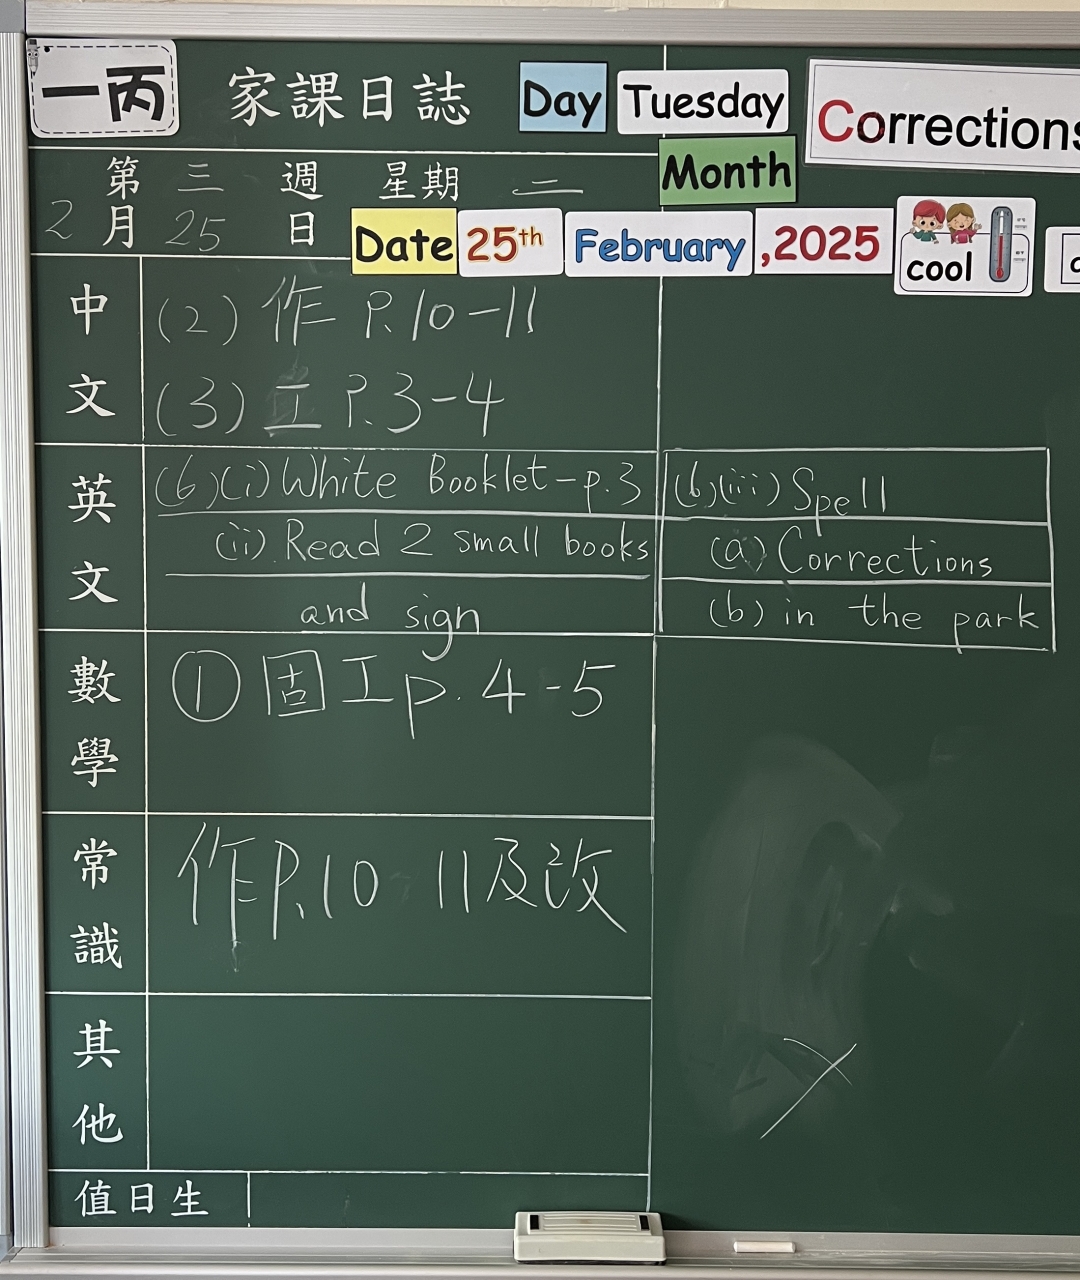 一丙 家課日誌 Day Tuesday Corrections
Month
第 三 週 星期 二
2 月 25 日 Date 25th February ,2025 cool
中文
(2) 作 P.10-11
(3) 工 P.3-4
英文
(6)(i) White Booklet - p.3
(ii) Read 2 small books
and sign
(6)(iii) Spell
(a) Corrections
(b) in the park
數學
① 固 工 p. 4-5
常識
作P.10 11及改
其他
值日生